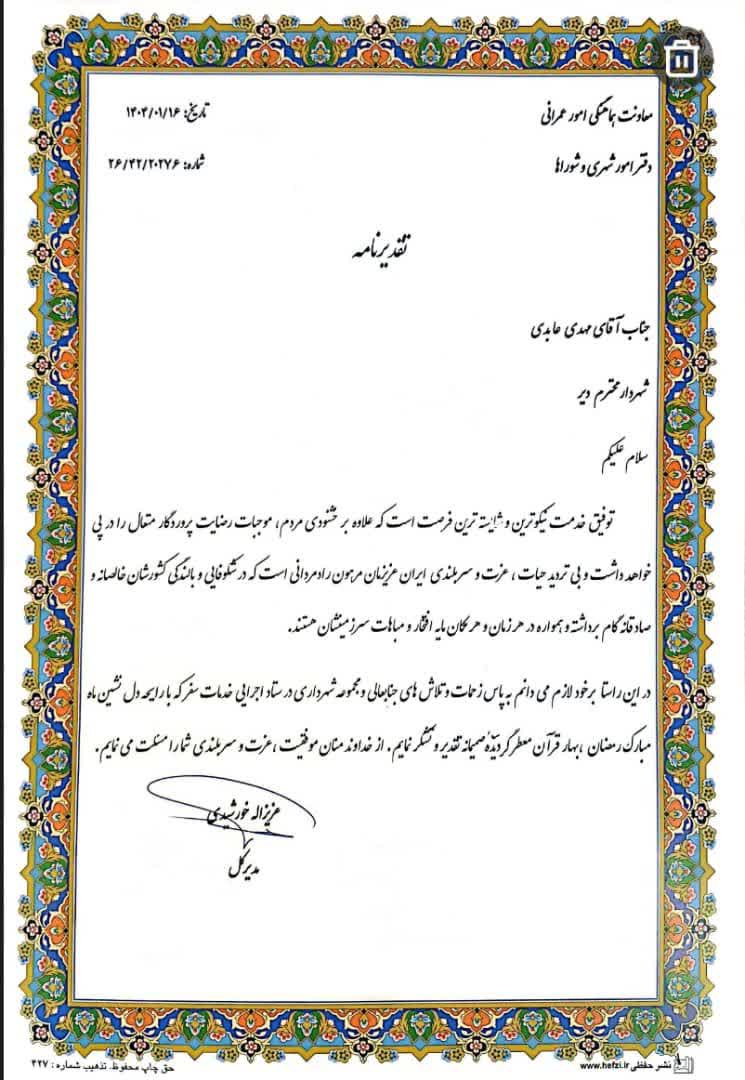 معاونت هماهنگی امور عمرانی
تاریخ: ۱۴۰۴/۰۱/۱۶
دفتر امور شهری و شوراها
شماره: ۲۶/۴۲/۲۰۲۷۶
تقدیرنامه
جناب آقای مهدی عابدی
شهردار محترم دیر
سلام علیکم
توفیق خدمت نیکوترین و شایسته ترین فرصت است که علاوه بر خشنودی مردم، موجبات رضایت پروردگار متعال را در پی
خواهد داشت و بی تردید حیات ، عزت و سربلندی ایران عزیزمان مرهون رادمردانی است که در شکوفایی و بالندگی کشورشان خالصانه و
صادقانه گام برداشته و همواره در هر زمان و هر مکان مایه افتخار و مباهات سرزمینشان هستند.
در این راستا برخود لازم می دانم به پاس زحمات و تلاش های جنابعالی و مجموعه شهرداری در ستاد اجرایی خدمات سفر که با رایحه دل نشین ماه
مبارک رمضان ،بهار قرآن معطر گردیده صمیمانه تقدیر و تشکر نمایم. از خداوند منان موفقیت ،عزت و سربلندی شما را مسئلت می نمایم.
عزیزاله خورشیدی
مدیرکل
نشر حفظی www.hefzi.ir
حق چاپ محفوظ. تذهیب شماره : ۴۲۷